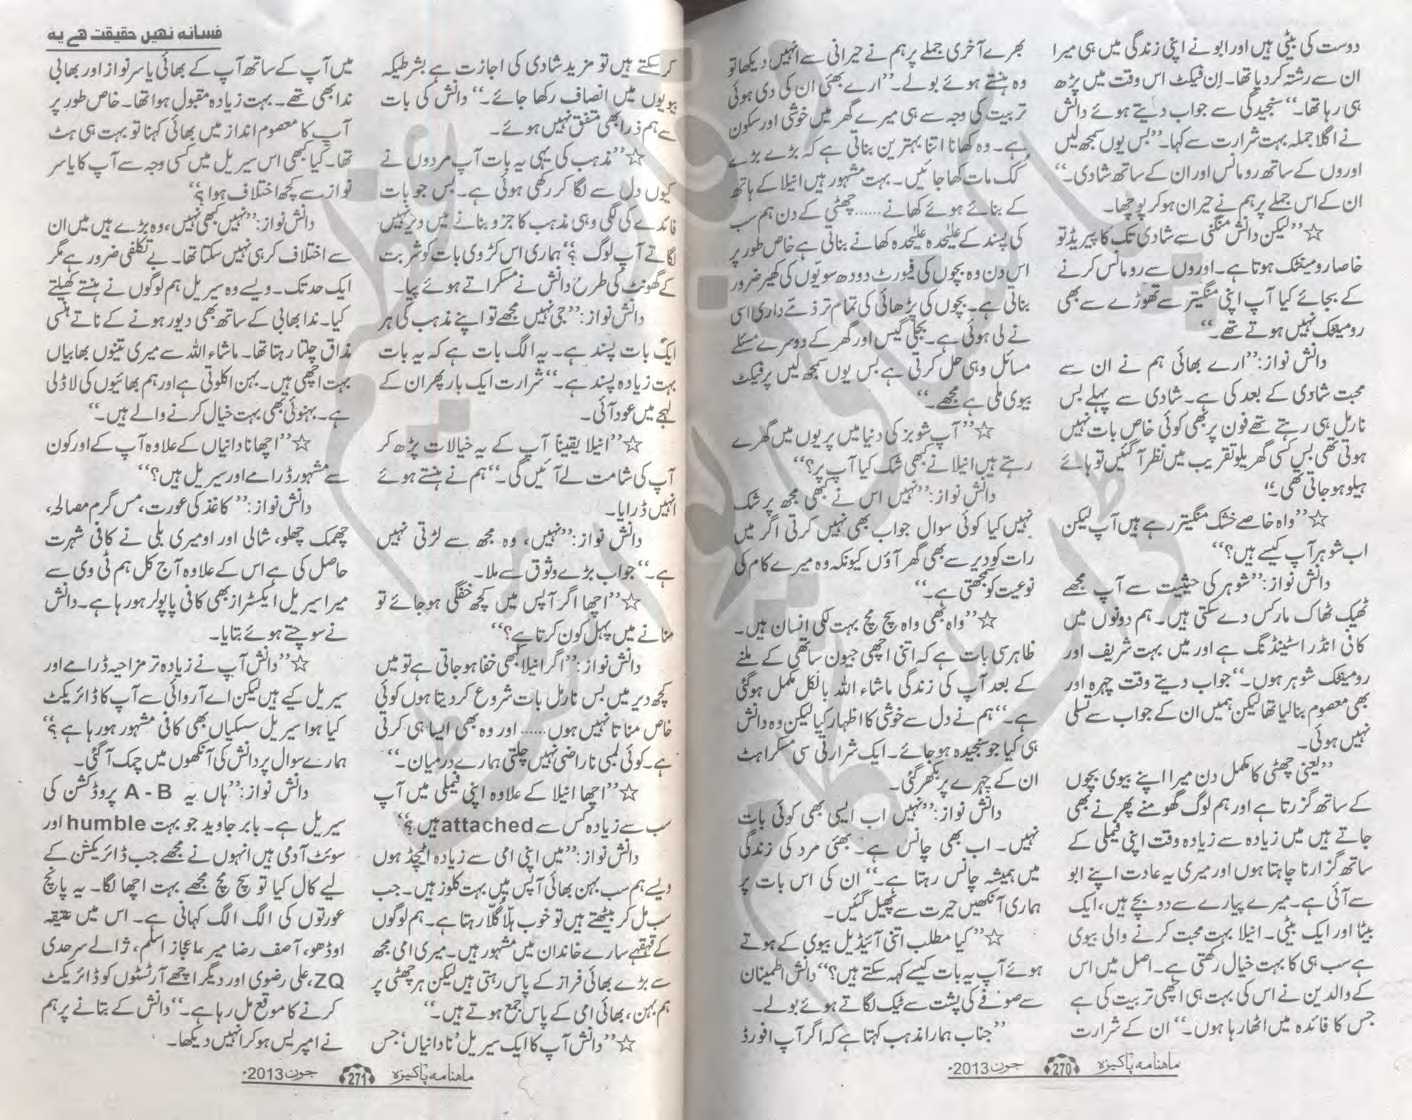 دوست کی بیٹی ہیں اور ابو نے اپنی زندگی میں ہی میرا
ان سے رشتہ کر دیا تھا۔ اِن فیکٹ اس وقت میں پڑھ
ہی رہا تھا۔'' سنجیدگی سے جواب دیتے ہوئے دانش
نے اگلا جملہ بہت شرارت سے کہا۔ ''بس یوں سمجھ لیں
اوروں کے ساتھ رومانس اور ان کے ساتھ شادی۔''
ان کے اس جملے پر ہم نے حیران ہو کر پوچھا۔
☆ ''لیکن دانش منگنی سے شادی تک کا پیریڈ تو
خاصا رومینٹک ہوتا ہے۔ اوروں سے رومانس کرنے
کے بجائے کیا آپ اپنی منگیتر سے تھوڑے سے بھی
رومینٹک نہیں ہوتے تھے۔''
دانش نواز: ''ارے بھائی ہم نے ان سے
محبت شادی کے بعد کی ہے۔ شادی سے پہلے بس
نارمل ہی رہتے تھے فون پر بھی کوئی خاص بات نہیں
ہوتی تھی بس کسی گھریلو تقریب میں نظر آگئیں تو ہائے
ہیلو ہو جاتی تھی۔''
☆ ''واہ خاصے خشک منگیتر رہے ہیں آپ لیکن
اب شوہر آپ کیسے ہیں؟''
دانش نواز: ''شوہر کی حیثیت سے آپ مجھے
ٹھیک ٹھاک مارکس دے سکتی ہیں۔ ہم دونوں میں
کافی انڈر اسٹینڈنگ ہے اور میں بہت شریف اور
رومینٹک شوہر ہوں۔'' جواب دیتے وقت چہرہ اور
بھی معصوم بنالیا تھا لیکن ہمیں ان کے جواب سے تسلی
نہیں ہوئی۔
''یعنی چھٹی کا مکمل دن میرا اپنے بیوی بچوں
کے ساتھ گزرتا ہے اور ہم لوگ گھومنے پھرنے بھی
جاتے ہیں میں زیادہ سے زیادہ وقت اپنی فیملی کے
ساتھ گزارنا چاہتا ہوں اور میری یہ عادت اپنے ابو
سے آئی ہے۔ میرے پیارے سے دو بچے ہیں، ایک
بیٹا اور ایک بیٹی۔ انیلا بہت محبت کرنے والی بیوی
ہے سب ہی کا بہت خیال رکھتی ہے۔ اصل میں اس
کے والدین نے اس کی بہت ہی اچھی تربیت کی ہے
جس کا فائدہ میں اٹھا رہا ہوں۔'' ان کے شرارت
بھرے آخری جملے پر ہم نے حیرانی سے انہیں دیکھا تو
وہ ہنستے ہوئے بولے۔ ''ارے بھئی ان کی دی ہوئی
تربیت کی وجہ سے ہی میرے گھر میں خوشی اور سکون
ہے۔ وہ کھانا اتنا بہترین بناتی ہے کہ بڑے بڑے
کک مات کھا جائیں۔ بہت مشہور ہیں انیلا کے ہاتھ
کے بنائے ہوئے کھانے...... چھٹی کے دن ہم سب
کی پسند کے علیحدہ علیحدہ کھانے بناتی ہے خاص طور پر
اس دن وہ بچوں کی فیورٹ دودھ سویّوں کی کھیر ضرور
بناتی ہے۔ بچوں کی پڑھائی کی تمام تر ذمے داری اسی
نے لی ہوئی ہے۔ بجلی گیس اور گھر کے دوسرے مسئلے
مسائل وہی حل کرتی ہے بس یوں سمجھ لیں پرفیکٹ
بیوی ملی ہے مجھے۔''
☆ ''آپ شوبز کی دنیا میں پریوں میں گھرے
رہتے ہیں انیلا نے بھی شک کیا آپ پر؟''
دانش نواز: ''نہیں اس نے کبھی مجھ پر شک
نہیں کیا کوئی سوال جواب بھی نہیں کرتی اگر میں
رات کو دیر سے بھی گھر آؤں کیونکہ وہ میرے کام کی
نوعیت کو سمجھتی ہے۔''
☆ ''واہ بھی واہ سچ مچ بہت لکی انسان ہیں۔
ظاہر سی بات ہے کہ اتنی اچھی جیون ساتھی کے ملنے
کے بعد آپ کی زندگی ماشاء اللہ بالکل مکمل ہوگئی
ہے۔'' ہم نے دل سے خوشی کا اظہار کیا لیکن وہ دانش
ہی کیا جو سنجیدہ ہو جائے۔ ایک شرارتی سی مسکراہٹ
ان کے چہرے پر بکھر گئی۔
دانش نواز: ''نہیں اب ایسی بھی کوئی بات
نہیں۔ اب بھی چانس ہے۔ بھئی مرد کی زندگی
میں ہمیشہ چانس رہتا ہے۔'' ان کی اس بات پر
ہماری آنکھیں حیرت سے پھیل گئیں۔
☆ ''کیا مطلب اتنی آئیڈیل بیوی کے ہوتے
ہوئے آپ یہ بات کیسے کہہ سکتے ہیں؟'' دانش اطمینان
سے صوفے کی پشت سے ٹیک لگاتے ہوئے بولے۔
''جناب ہمارا مذہب کہتا ہے کہ اگر آپ افورڈ
ماهنامہ پاکیزہ 270 جون 2013ء
فسانہ نھیں حقیقت ھے یہ
کر سکتے ہیں تو مزید شادی کی اجازت ہے بشرطیکہ
بیویوں میں انصاف رکھا جائے۔'' دانش کی بات
سے ہم ذرا بھی متفق نہیں ہوئے۔
☆ ''مذہب کی یہی یہ بات آپ مردوں نے
کیوں دل سے لگا کر رکھی ہوئی ہے۔ بس جو بات
فائدے کی لگی وہی مذہب کا جزو بنانے میں دیر نہیں
لگاتے آپ لوگ؟'' ہماری اس کڑوی بات کو شربت
کے گھونٹ کی طرح دانش نے مسکراتے ہوئے پیا۔
دانش نواز: ''جی نہیں مجھے تو اپنے مذہب کی ہر
ایک بات پسند ہے۔ یہ الگ بات ہے کہ یہ بات
بہت زیادہ پسند ہے۔'' شرارت ایک بار پھر ان کے
لہجے میں عود آئی۔
☆ ''انیلا یقیناً آپ کے یہ خیالات پڑھ کر
آپ کی شامت لے آئیں گی۔'' ہم نے ہنستے ہوئے
انہیں ڈرایا۔
دانش نواز: ''نہیں، وہ مجھ سے لڑتی نہیں
ہے۔'' جواب بڑے وثوق سے ملا۔
☆ ''اچھا اگر آپس میں کچھ خفگی ہو جائے تو
منانے میں پہل کون کرتا ہے؟''
دانش نواز: ''اگر انیلا کبھی خفا ہو جاتی ہے تو میں
کچھ دیر میں بس نارمل بات شروع کر دیتا ہوں کوئی
خاص مناتا نہیں ہوں...... اور وہ بھی ایسا ہی کرتی
ہے۔ کوئی لمبی ناراضی نہیں چلتی ہمارے درمیان۔''
☆ ''اچھا انیلا کے علاوہ اپنی فیملی میں آپ
سب سے زیادہ کس سے attached ہیں؟''
دانش نواز: ''میں اپنی امی سے زیادہ اٹیچڈ ہوں
ویسے ہم سب بہن بھائی آپس میں بہت کلوز ہیں۔ جب
سب مل کر بیٹھتے ہیں تو خوب ہلّا گلّا رہتا ہے۔ ہم لوگوں
کے قہقہے سارے خاندان میں مشہور ہیں۔ میری امی مجھ
سے بڑے بھائی فراز کے پاس رہتی ہیں لیکن ہر چھٹی پر
ہم بہن، بھائی امی کے پاس جمع ہوتے ہیں۔''
☆ ''دانش آپ کا ایک سیریل 'نادانیاں' جس
میں آپ کے ساتھ آپ کے بھائی یاسر نواز اور بھابی
ندا بھی تھے۔ بہت زیادہ مقبول ہوا تھا۔ خاص طور پر
آپ کا معصوم انداز میں بھائی کہنا تو بہت ہی ہٹ
تھا۔ کیا کبھی اس سیریل میں کسی وجہ سے آپ کا یاسر
نواز سے کچھ اختلاف ہوا؟''
دانش نواز: ''نہیں کبھی نہیں، وہ بڑے ہیں میں ان
سے اختلاف کر ہی نہیں سکتا تھا۔ بے تکلفی ضرور ہے مگر
ایک حد تک۔ ویسے وہ سیریل ہم لوگوں نے ہنستے کھیلتے
کیا۔ ندا بھابی کے ساتھ بھی دیور ہونے کے ناتے ہنسی
مذاق چلتا رہتا تھا۔ ماشاء اللہ سے میری تینوں بھابیاں
بہت اچھی ہیں۔ بہن اکلوتی ہے اور ہم بھائیوں کی لاڈلی
ہے۔ بہنوئی بھی بہت خیال کرنے والے ہیں۔''
☆ ''اچھا نادانیاں کے علاوہ آپ کے اور کون
سے مشہور ڈرامے اور سیریل ہیں؟''
دانش نواز: ''کاغذ کی عورت، مس گرم مصالحہ،
چھمک چھلو، شالی اور او میری بلی نے کافی شہرت
حاصل کی ہے اس کے علاوہ آج کل ہم ٹی وی سے
میرا سیریل ایکسٹراز بھی کافی پاپولر ہو رہا ہے۔ دانش
نے سوچتے ہوئے بتایا۔
☆ ''دانش آپ نے زیادہ تر مزاحیہ ڈرامے اور
سیریل کیے ہیں لیکن اے آر وائی سے آپ کا ڈائریکٹ
کیا ہوا سیریل سسکیاں بھی کافی مشہور ہو رہا ہے؟''
ہمارے سوال پر دانش کی آنکھوں میں چمک آگئی۔
دانش نواز: ''ہاں یہ A - B پروڈکشن کی
سیریل ہے۔ بابر جاوید جو بہت humble اور
سوئٹ آدمی ہیں انہوں نے مجھے جب ڈائریکشن کے
لیے کال کیا تو سچ مچ مجھے بہت اچھا لگا۔ یہ پانچ
عورتوں کی الگ الگ کہانی ہے۔ اس میں عتیقہ
اوڈھو، آصف رضا میر، اعجاز اسلم، ژالے سرحدی
ZQ، علی رضوی اور دیگر اچھے آرٹسٹوں کو ڈائریکٹ
کرنے کا موقع مل رہا ہے۔'' دانش کے بتانے پر ہم
نے امپریس ہو کر انہیں دیکھا۔
ماهنامہ پاکیزہ 271 جون 2013ء